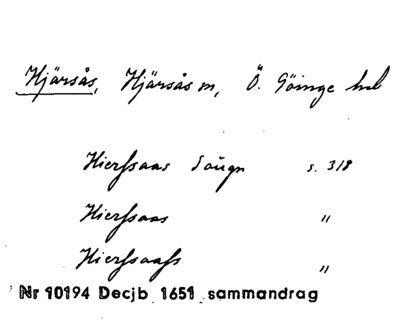 Hjärsås, Hjärsås sn, Ö. Göinge hd
Hierssaas Sougn s. 318
Hierssaas "
Hierssaass "
Nr 10194 Decjb 1651 sammandrag